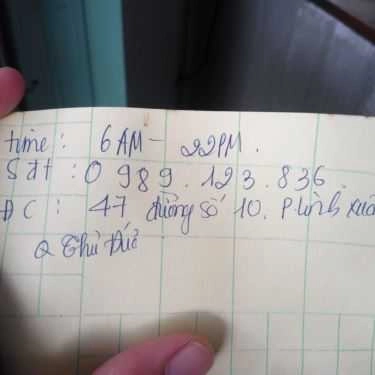 time : 6 AM - 22PM.
Sđt : 0 989.123.836.
ĐC : 47 đường số 10. P linh xuâ
Q Thủ Đức